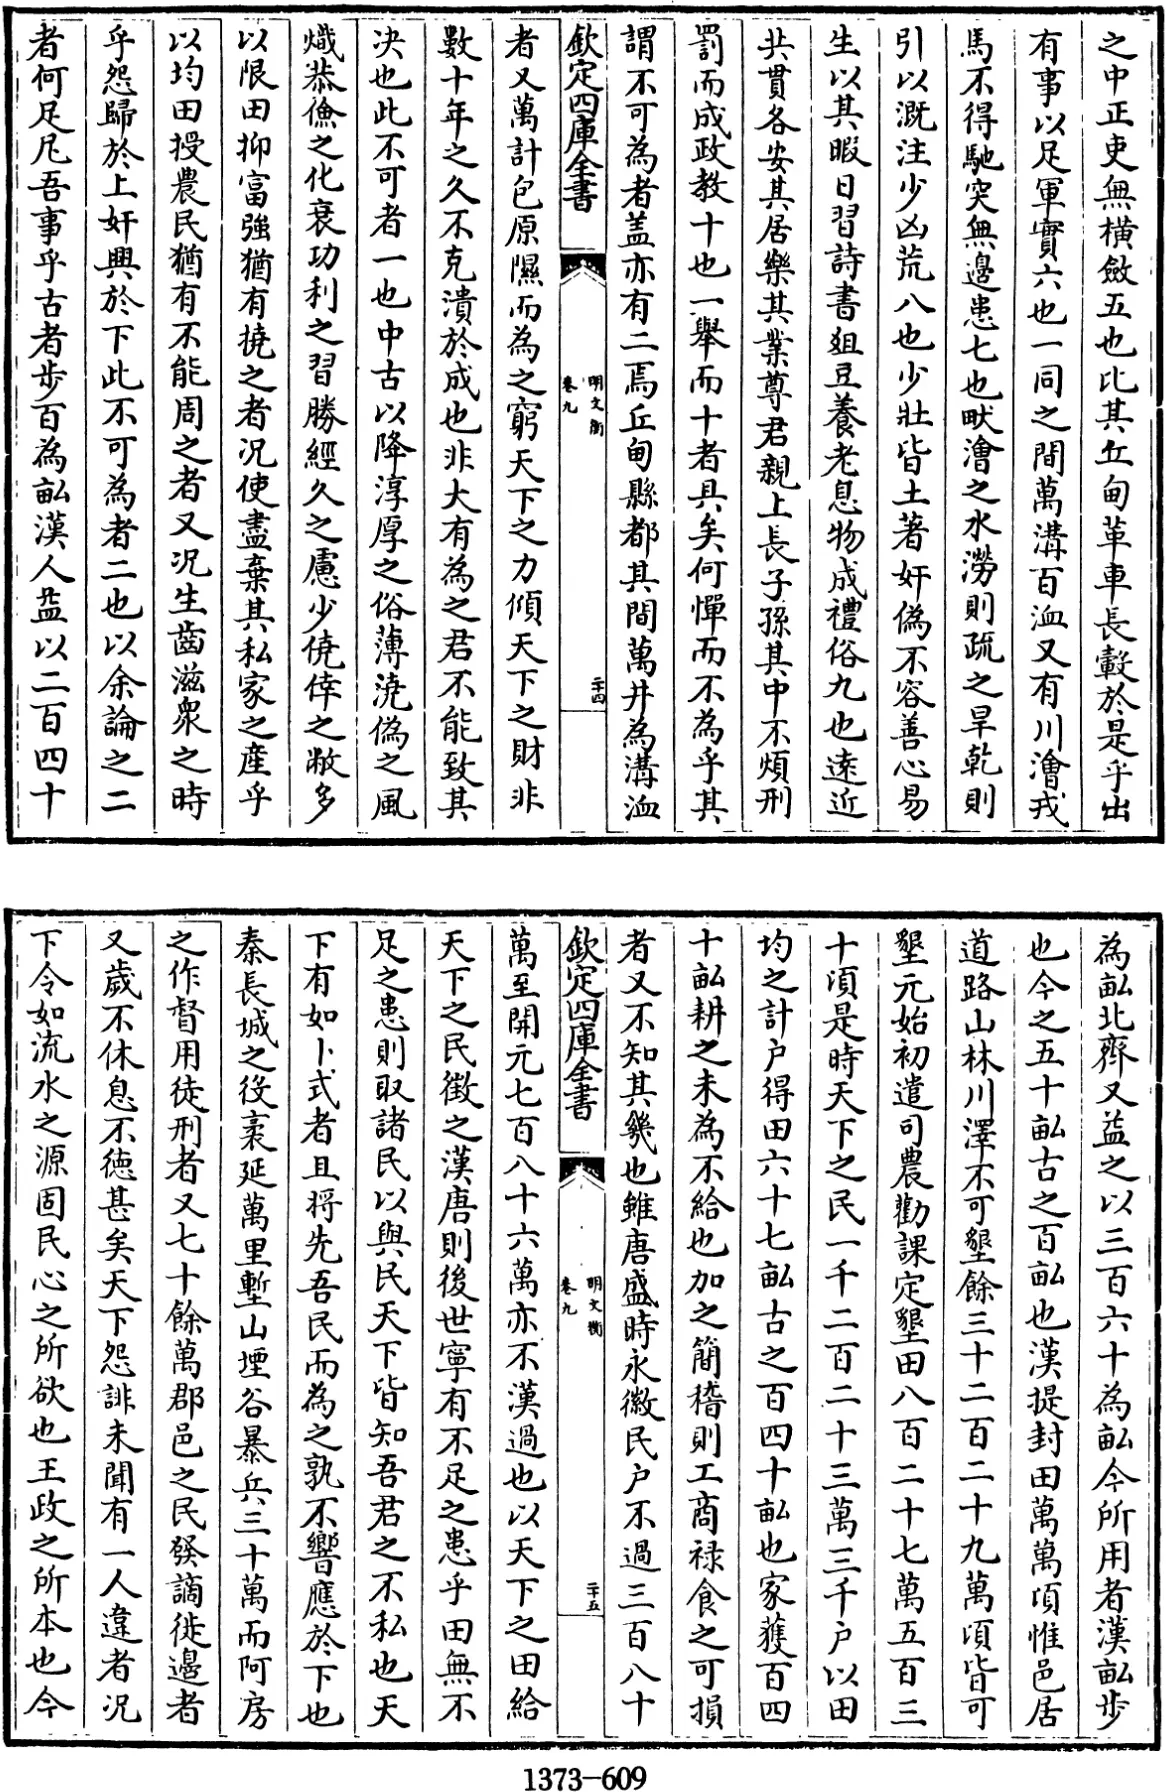 之中正吏無横斂五也比其丘甸革車長轂於是乎出
有事以足軍實六也一同之間萬溝百洫又有川澮戎
馬不得馳突無邊患七也畎澮之水澇則疏之旱乾則
引以溉注少凶荒八也少壯皆土著奸偽不容善心易
生以其暇日習詩書俎豆養老息物成禮俗九也遠近
共貫各安其居樂其業尊君親上長子孫其中不煩刑
罰而成政教十也一舉而十者具矣何憚而不為乎其
謂不可為者蓋亦有二焉丘甸縣都其間萬井為溝洫
欽定四庫全書
明文衡
卷九
二十四
者又萬計包原隰而為之窮天下之力傾天下之財非
數十年之久不克潰於成也非大有為之君不能致其
决也此不可者一也中古以降淳厚之俗薄澆偽之風
熾恭儉之化衰功利之習勝經久之慮少僥倖之敝多
以限田抑富強猶有撓之者况使盡棄其私家之產乎
以均田授農民猶有不能周之者又况生齒滋衆之時
乎怨歸於上奸興於下此不可為者二也以余論之二
者何足凥吾事乎古者步百為畝漢人益以二百四十
為畝北齊又益之以三百六十為畝今所用者漢畝步
也今之五十畝古之百畝也漢提封田萬萬頃惟邑居
道路山林川澤不可墾餘三十二百二十九萬頃皆可
墾元始初遣司農勸課定墾田八百二十七萬五百三
十頃是時天下之民一千二百二十三萬三千户以田
均之計户得田六十七畝古之百四十畝也家獲百四
十畝耕之未為不給也加之簡稽則工商禄食之可損
者又不知其幾也雖唐盛時永徽民户不過三百八十
欽定四庫全書
明文衡
卷九
二十五
萬至開元七百八十六萬亦不漢過也以天下之田給
天下之民徵之漢唐則後世寧有不足之患乎田無不
足之患則取諸民以與民天下皆知吾君之不私也天
下有如卜式者且将先吾民而為之孰不響應於下也
秦長城之役袤延萬里塹山堙谷暴兵三十萬而阿房
之作督用徒刑者又七十餘萬郡邑之民發謫徙邊者
又歲不休息不德甚矣天下怨誹未聞有一人違者况
下令如流水之源固民心之所欲也王政之所本也今
1373-609